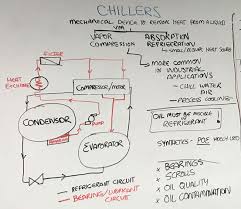 CHILLERS
MECHANICAL DEVICE TO REMOVE HEAT FROM A LIQUID
VIA
VAPOR
COMPRESSION
ABSORPTION
REFRIGERATION
- SMALL / REQUIRE HEAT SOURCE
FILTER
HEAT
EXCHANGER
COMPRESSOR/MOTOR
CONDENSOR
PUMP
EVAPORATOR
- REFRIGERANT CIRCUIT
- BEARINGS/LUBRICANT
CIRCUIT
→ MORE COMMON
IN INDUSTRIAL
APPLICATIONS
- CHILL WATER
AIR
- PROCESS COOLING
OIL MUST BE MISCIBLE
REFRIGERANT
SYNTHETICS - POE WIDELY USED
x BEARINGS
x SCROLLS
x OIL QUALITY
x OIL CONTAMINATION